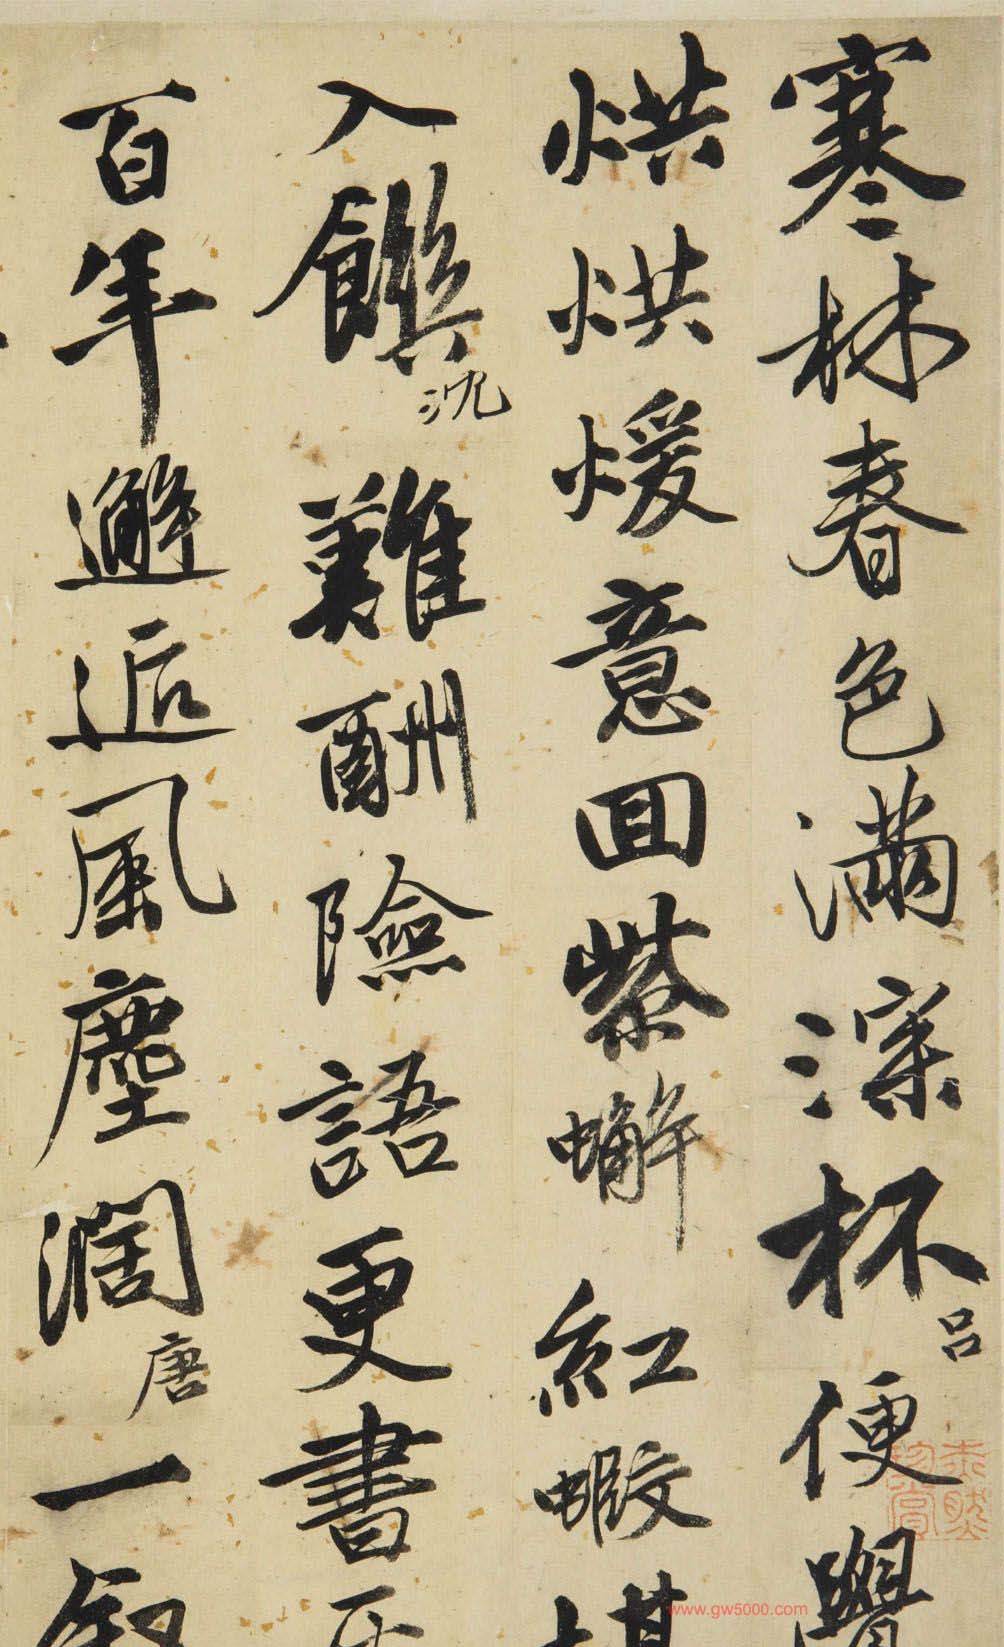 寒林春色滿深杯呂便覺
烘烘煖意回紫蠏紅蝦堪
入饌沈難酬險語更書
百年邂逅風塵濶唐一叙
www.gw5000.com